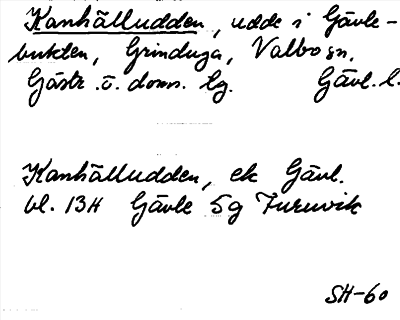 Kanhälludden, udde i Gävle-
bukten, Grinduga, Valbo sn,
Gästr. ö. doms. hg. Gävl. l.
Kanhälludden, ek Gävl.
bl. 13H Gävle 5g Furuvik
SH-60